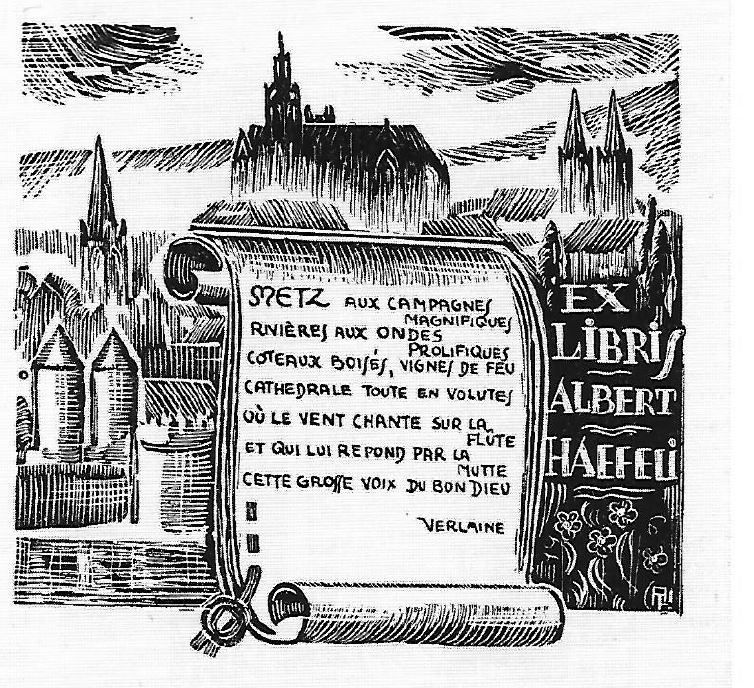 METZ AUX CAMPAGNES
MAGNIFIQUES
RIVIÈRES AUX ONDES
PROLIFIQUES
COTEAUX BOISÉS, VIGNES DE FEU
CATHEDRALE TOUTE EN VOLUTES
OÙ LE VENT CHANTE SUR LA
FLÛTE
ET QUI LUI REPOND PAR LA
MUTTE
CETTE GROSSE VOIX DU BON DIEU
VERLAINE
EX
LIBRIS
ALBERT
HAEFELI